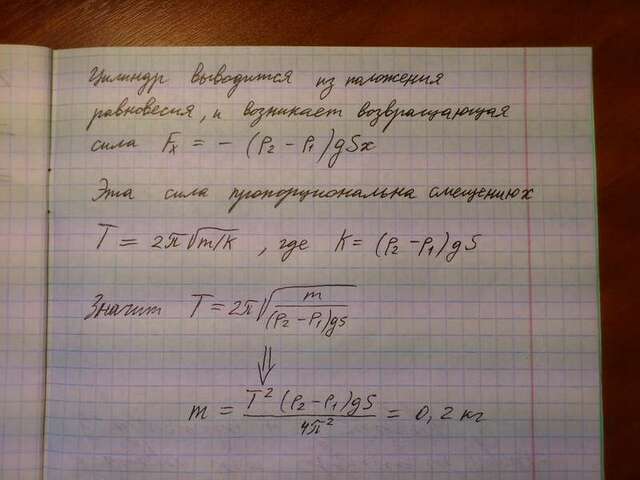 Цилиндр выводится из положения
равновесия, и возникает возвращающая
сила Fx = - (ρ2 - ρ1)gSx
Эта сила пропорциональна смещению x
T = 2π√m/k , где K = (ρ2 - ρ1)gS
Значит T = 2π√(m/(ρ2 - ρ1)gS)
⇓
m = T²(ρ2 - ρ1)gS/4π² = 0,2 кг